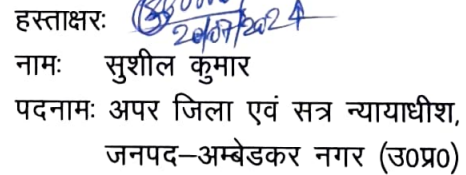 हस्ताक्षरः
20/07/2024
नामः सुशील कुमार
पदनामः अपर जिला एवं सत्र न्यायाधीश,
जनपद–अम्बेडकर नगर (उ0प्र0)